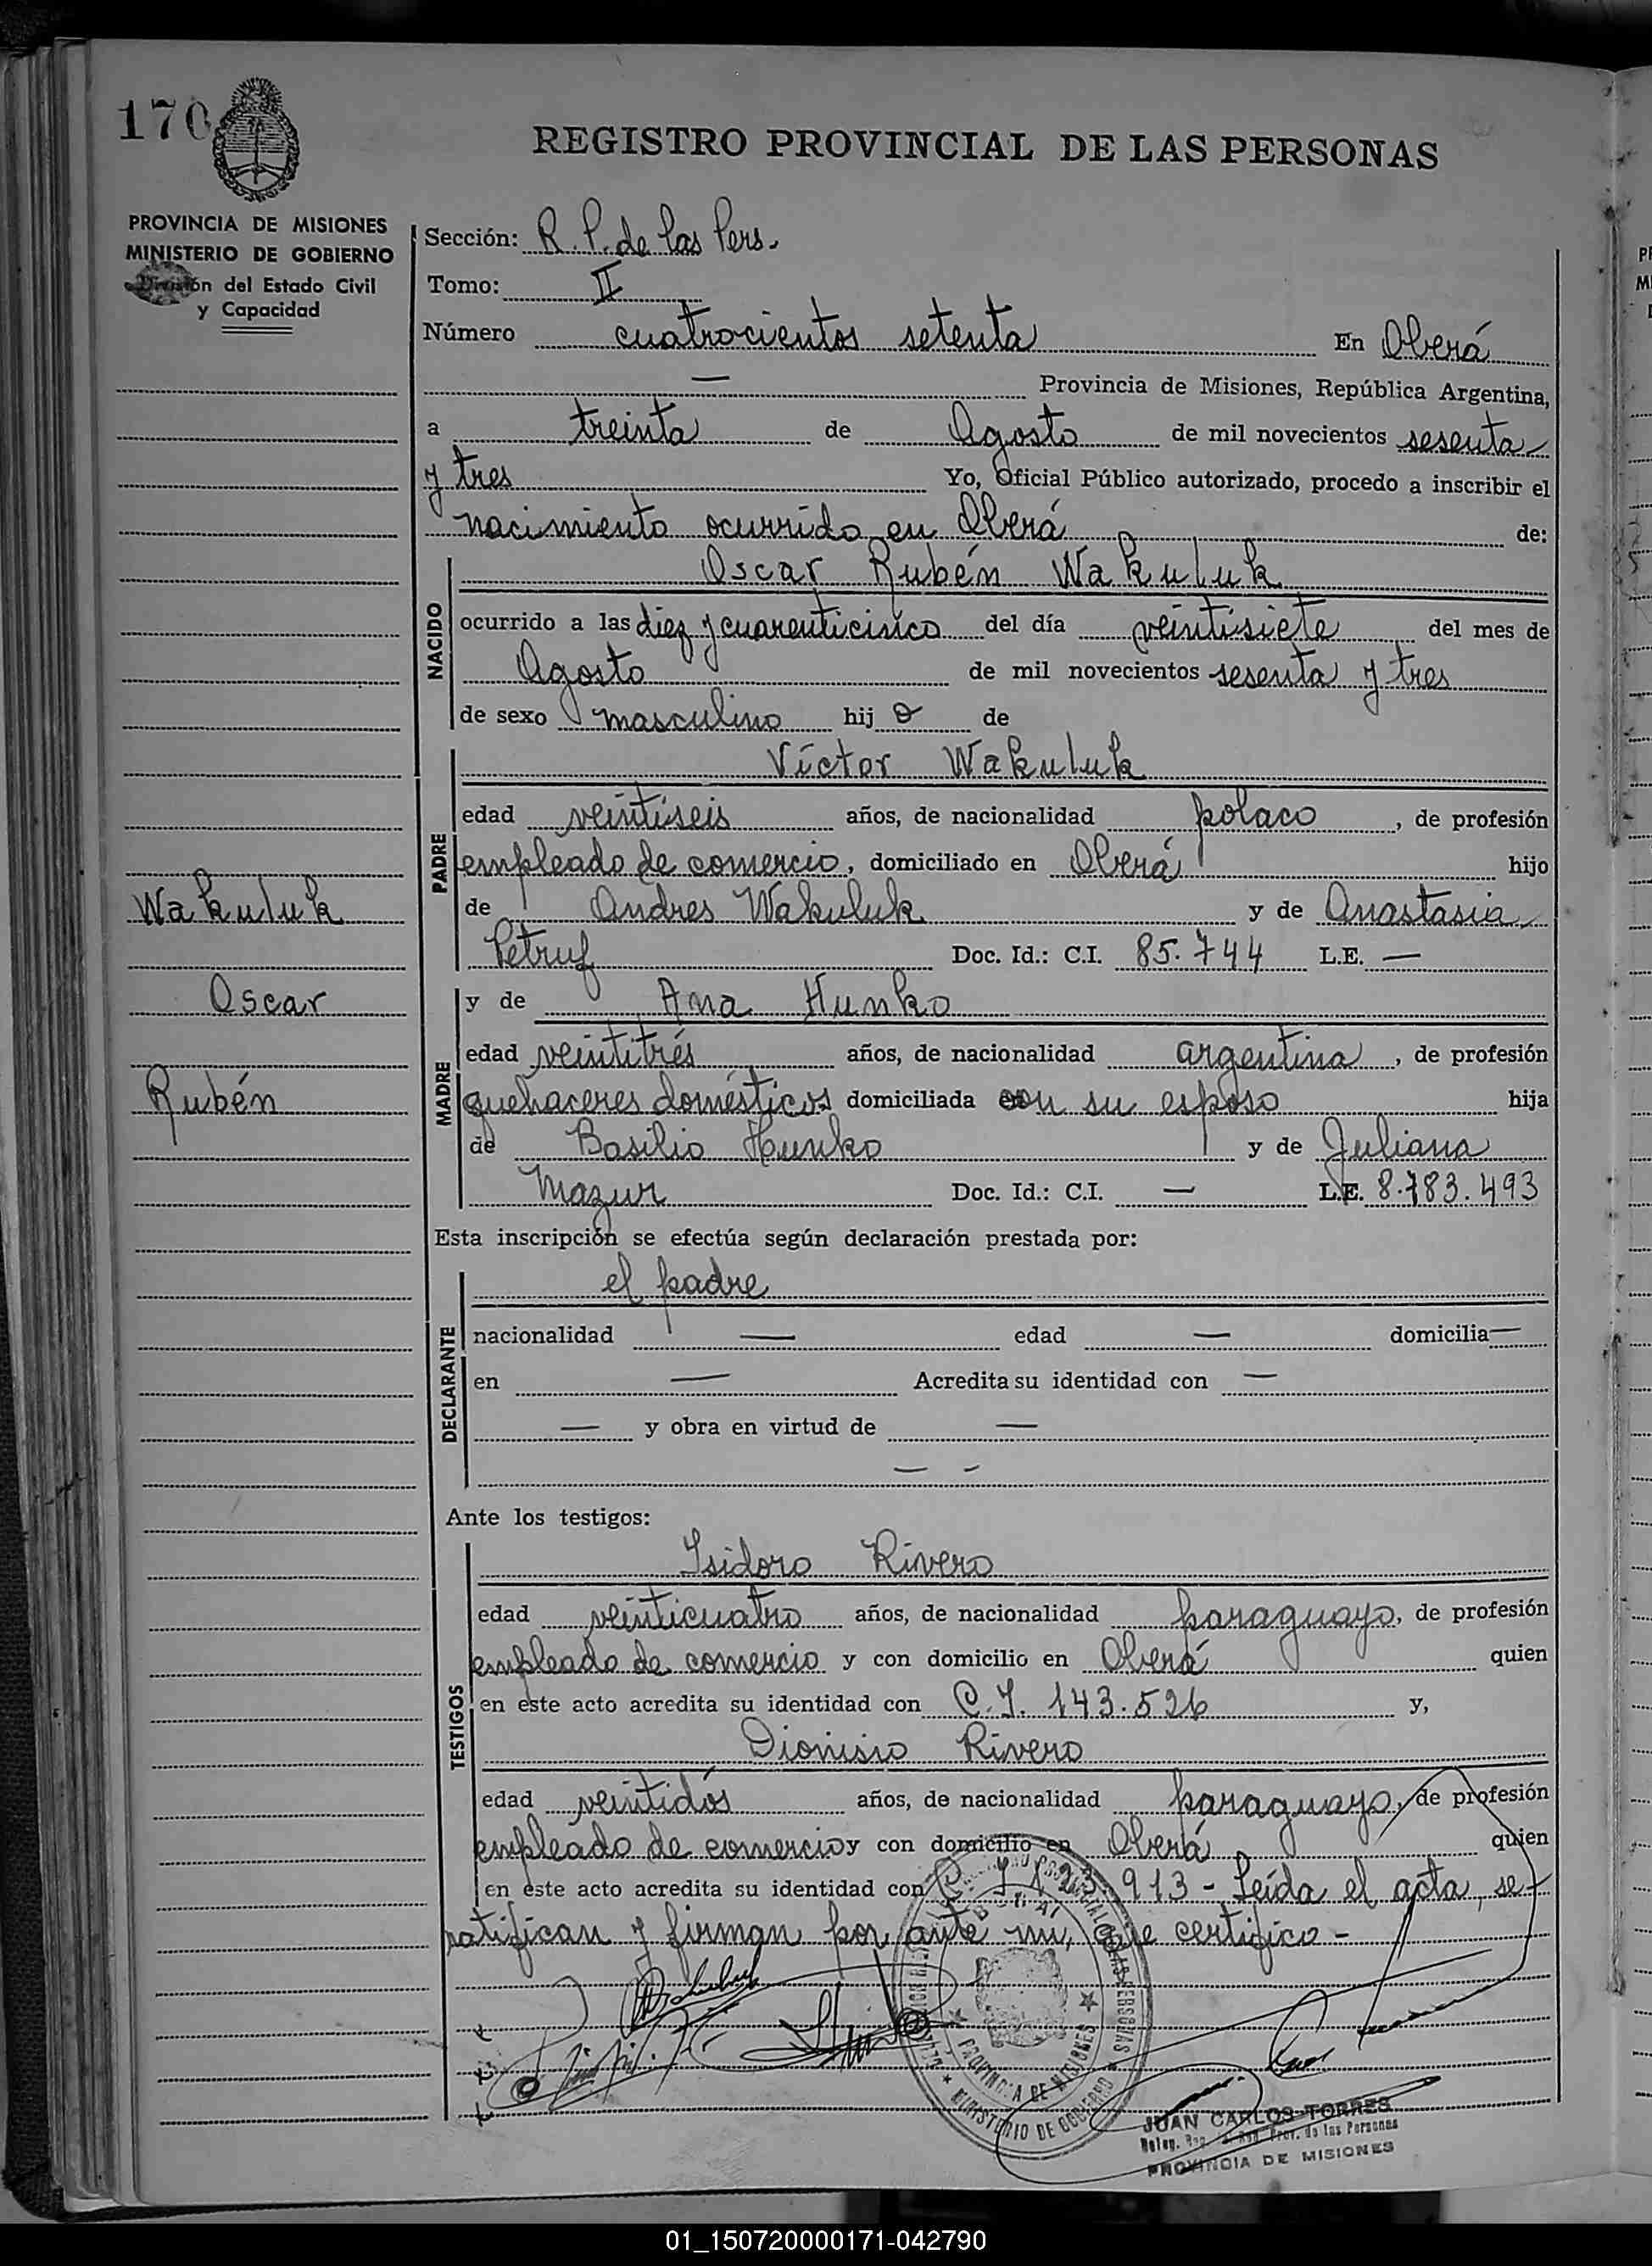 170
REGISTRO PROVINCIAL DE LAS PERSONAS
PROVINCIA DE MISIONES
MINISTERIO DE GOBIERNO
División del Estado Civil
y Capacidad
Sección: R. P. de las Pers.
Tomo: II
Número cuatrocientos setenta En Oberá
— Provincia de Misiones, República Argentina,
a treinta de Agosto de mil novecientos sesenta
y tres Yo, Oficial Público autorizado, procedo a inscribir el
nacimiento ocurrido en Oberá de:
NACIDO
Oscar Rubén Wakuluk
ocurrido a las diez y cuarenticinco del día veintisiete del mes de
Agosto de mil novecientos sesenta y tres
de sexo masculino hij o de
PADRE
Víctor Wakuluk
edad veintiseis años, de nacionalidad polaco, de profesión
empleado de comercio, domiciliado en Oberá hijo
de Andres Wakuluk y de Anastasia
Petruf Doc. Id.: C.I. 85.744 L.E. —
Wakuluk
Oscar
Rubén
MADRE
y de Ana Hunko
edad veintitrés años, de nacionalidad argentina, de profesión
quehaceres domésticos domiciliada con su esposo hija
de Basilio Hunko y de Juliana
Mazur Doc. Id.: C.I. — L.E. 8.783.493
Esta inscripción se efectúa según declaración prestada por:
DECLARANTE
el padre
nacionalidad — edad — domicilia—
en — Acredita su identidad con —
— y obra en virtud de —
— -
Ante los testigos:
TESTIGOS
Isidoro Rivero
edad veinticuatro años, de nacionalidad paraguayo, de profesión
empleado de comercio y con domicilio en Oberá quien
en este acto acredita su identidad con C.I. 143.526 y,
Dionisio Rivero
edad veintidós años, de nacionalidad paraguayo, de profesión
empleado de comercio y con domicilio en Oberá quien
en este acto acredita su identidad con 913 - Leída el acta, se
ratifican y firman por ante mi, que certifico -
PROVINCIA DE MISIONES
MINISTERIO DE GOBIERNO
JUAN CARLOS TORRES
Prov. de las Personas
PROVINCIA DE MISIONES
01_150720000171-042790